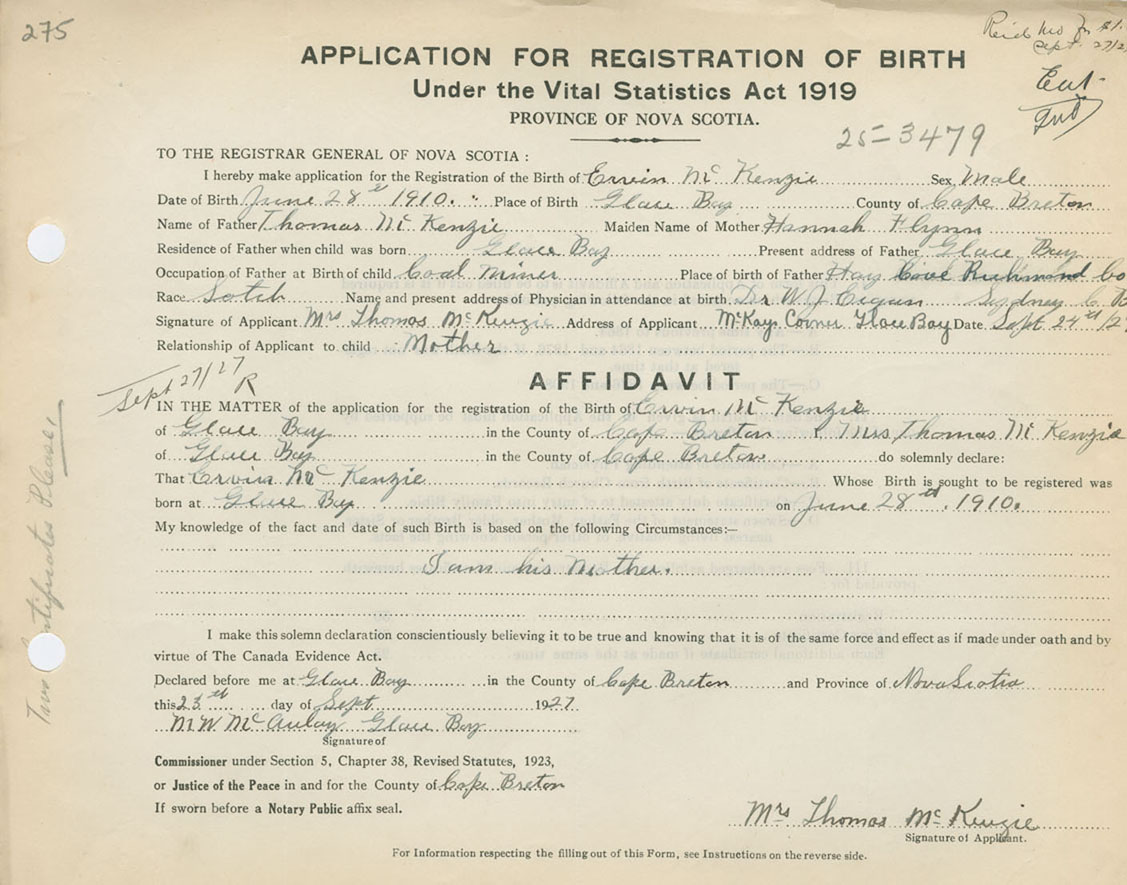 275
Sept 27/2
APPLICATION FOR REGISTRATION OF BIRTH
Under the Vital Statistics Act 1919
PROVINCE OF NOVA SCOTIA.
25-3479
TO THE REGISTRAR GENERAL OF NOVA SCOTIA :
I hereby make application for the Registration of the Birth of Ervin Mc Kenzie Sex Male
Date of Birth June 28th 1910. Place of Birth Glace Bay County of Cape Breton
Name of Father Thomas Mc Kenzie Maiden Name of Mother Hannah Flynn
Residence of Father when child was born Glace Bay Present address of Father Glace Bay
Occupation of Father at Birth of child Coal Miner Place of birth of Father Hay Cove Richmond Co
Race Sotch Name and present address of Physician in attendance at birth Dr W J Egan Sydney C B
Signature of Applicant Mrs Thomas McKenzie Address of Applicant McKays Corner Glace Bay Date Sept 24th/27
Relationship of Applicant to child Mother
Sept 27/27 R
AFFIDAVIT
IN THE MATTER of the application for the registration of the Birth of Ervin Mc Kenzie
of Glace Bay in the County of Cape Breton I, Mrs Thomas Mc Kenzie
of Glace Bay in the County of Cape Breton do solemnly declare:
That Ervin Mc Kenzie Whose Birth is sought to be registered was
born at Glace Bay on June 28th, 1910.
My knowledge of the fact and date of such Birth is based on the following Circumstances:—
I am his Mother.
I make this solemn declaration conscientiously believing it to be true and knowing that it is of the same force and effect as if made under oath and by
virtue of The Canada Evidence Act.
Declared before me at Glace Bay in the County of Cape Breton and Province of Nova Scotia
this 23rd day of Sept 1927
M W McAulay Glace Bay
Signature of
Commissioner under Section 5, Chapter 38, Revised Statutes, 1923,
or Justice of the Peace in and for the County of Cape Breton
If sworn before a Notary Public affix seal.
Mrs Thomas McKenzie
Signature of Applicant.
For Information respecting the filling out of this Form, see Instructions on the reverse side.
Two Certificates Please,